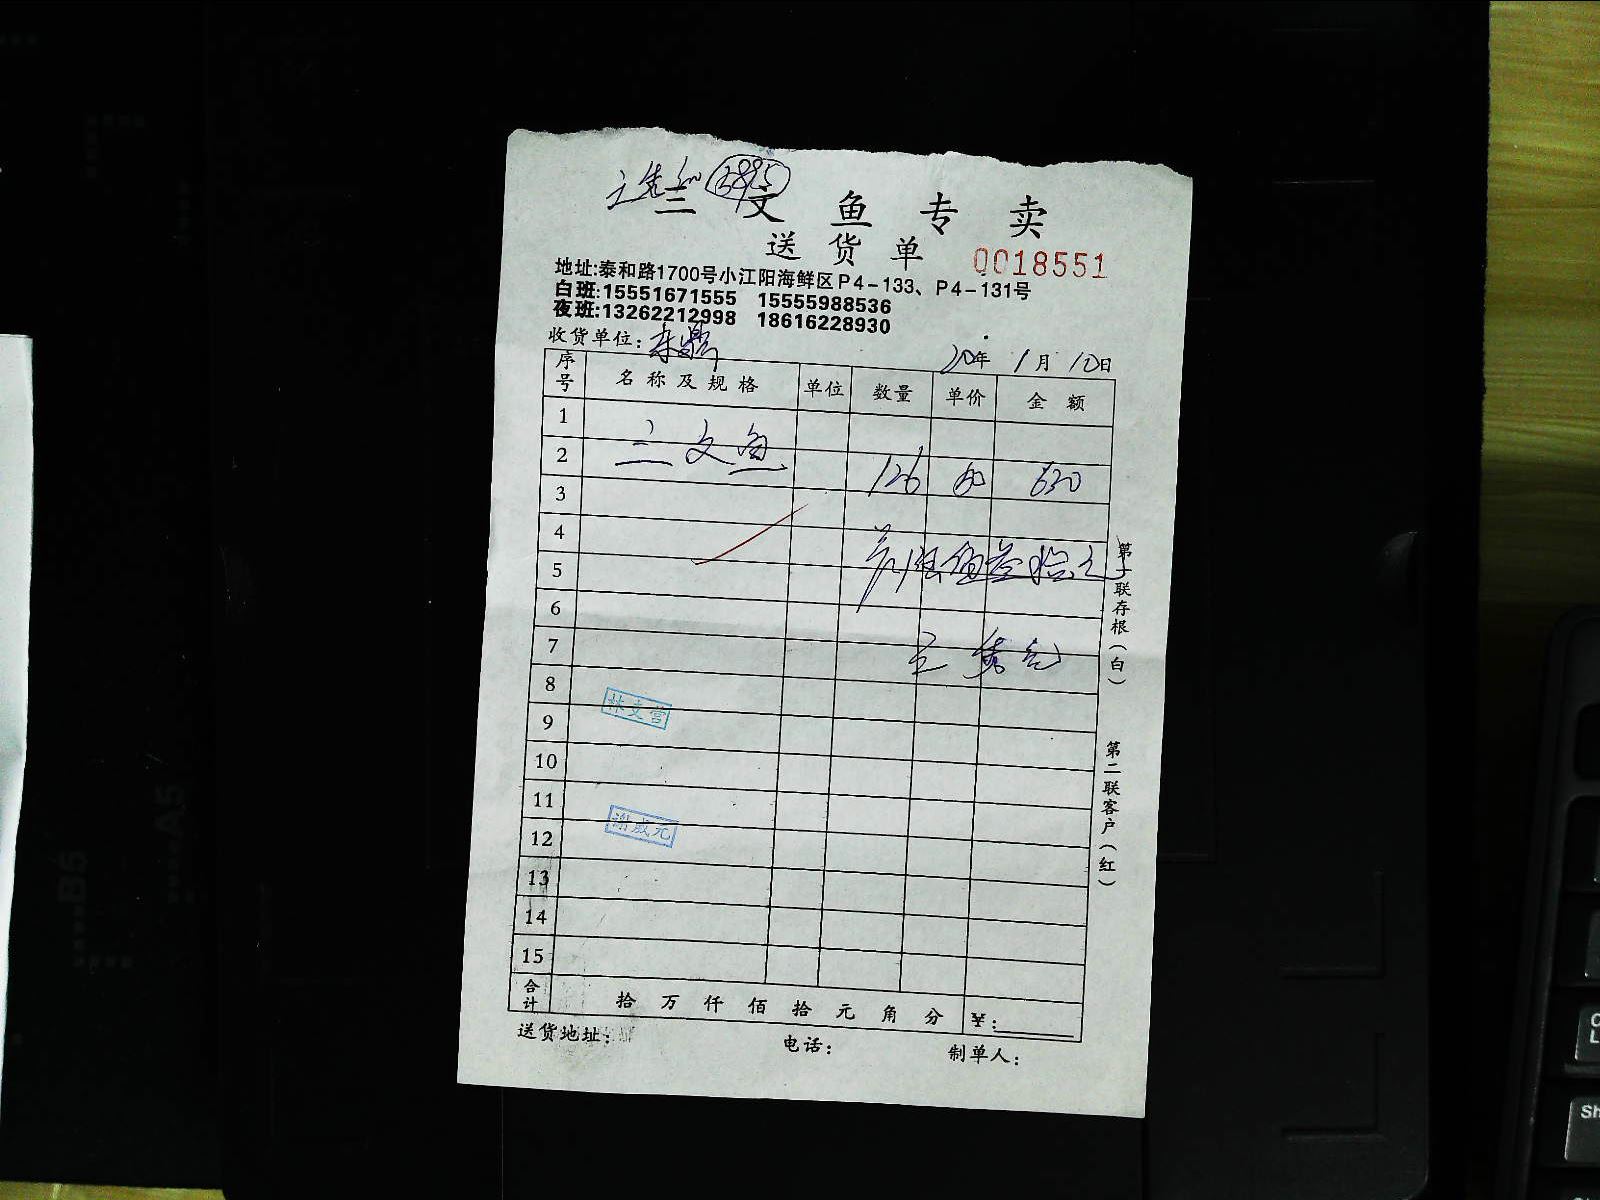 3895
三文鱼专卖
送货单 0018551
地址:泰和路1700号小江阳海鲜区P4-133、P4-131号
白班:15551671555 15555988536
夜班:13262212998 18616228930
收货单位: 20年 1月 10日
序号 名称及规格 单位 数量 单价 金额
1
2 三文鱼 126 50 630
3
4
5
6
7
8
9 林文营
10
11
12 谢成元
13
14
15
合计 拾 万 仟 佰 拾 元 角 分 ¥:
送货地址: 电话: 制单人:
第一联存根(白)
第二联客户(红)
B5
A5